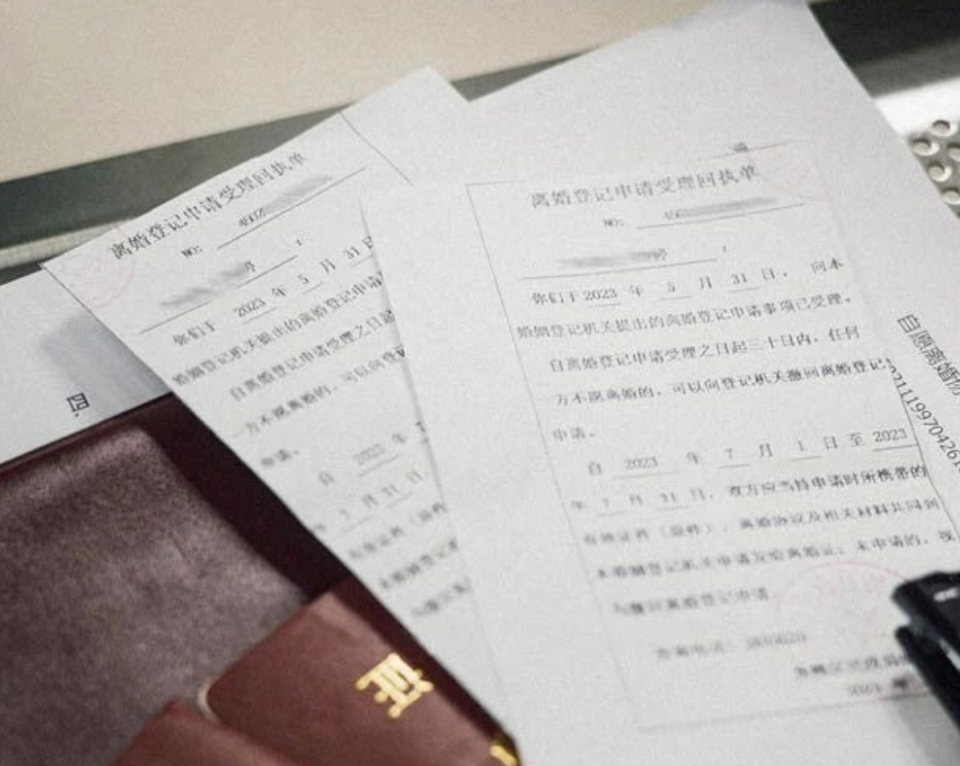 离婚登记申请受理回执单
NO:
你们于 2023 年 5 月 31 日
婚姻登记机关提出的离婚登记申请
自离婚登记申请受理之日起
一方不愿离婚的，可以向登
申请。
自 2023 年
年 7 月 31 日
四、
证
离婚登记申请受理回执单
NO:
婷 ：
你们于 2023 年 5 月 31 日， 向本
婚姻登记机关提出的离婚登记申请事项已受理。
自离婚登记申请受理之日起三十日内，任何
一方不愿离婚的，可以向登记机关撤回离婚登记
申请。
自 2023 年 7 月 1 日至 2023
年 7 月 31 日，双方应当持申请时所携带的
有效证件（原件）、离婚协议及相关材料共同到
本婚姻登记机关申请发给离婚证；未申请的，视
为撤回离婚登记申请。
自愿离婚协